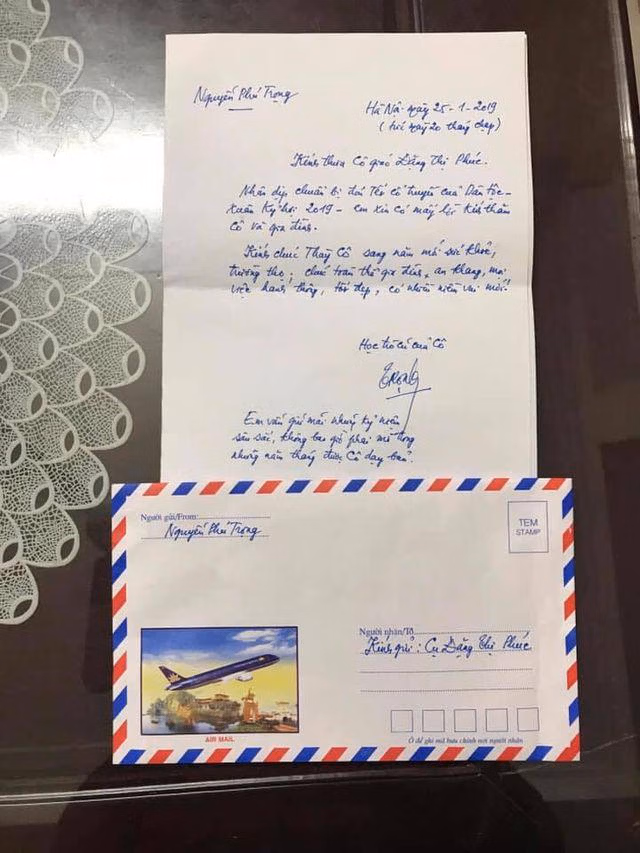 Nguyễn Phú Trọng
Hà Nội ngày 25-1-2019
(tức ngày 20 tháng chạp)
Kính thưa Cô giáo Đặng Thị Phúc.
Nhân dịp chuẩn bị đón Tết cổ truyền của Dân tộc -
Xuân Kỷ hợi 2019 - em xin có mấy lời kính thăm
Cô và gia đình.
Kính chúc Thày Cô sang năm mới sức khoẻ,
trường thọ; chúc toàn thể gia đình an khang, mọi
việc hanh thông, tốt đẹp, có nhiều niềm vui mới.
Học trò cũ của Cô
Trọng
Em vẫn giữ mãi những kỷ niệm
sâu sắc, không bao giờ phai mờ trong
những năm tháng được Cô dạy bảo.
Người gửi/From:
Nguyễn Phú Trọng
TEM
STAMP
Người nhận/To
Kính gửi: Cụ Đặng Thị Phúc
AIR MAIL
Ô để ghi mã bưu chính nơi người nhận